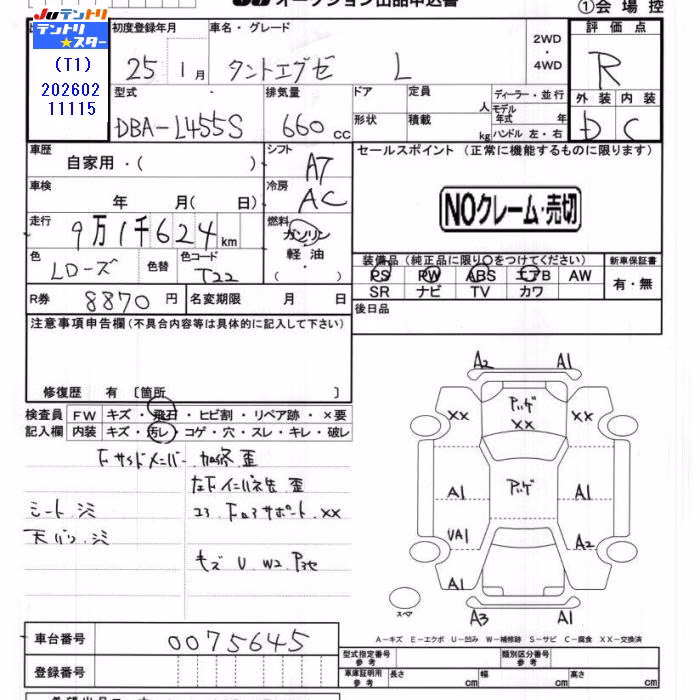 JUテントリ JU オークション出品申込書 ①会場控
テントリ★スター
(T1)
202602
11115
初度登録年月 車名・グレード 2WD ・ 4WD 評価点
25 1月 タントエグゼ L R
型式 排気量 ドア 定員 人 ディーラー・並行 外装 内装
DBA-L455S 660cc 形状 積載 kg モデル年式 年 ハンドル 左・右 D C
車歴 自家用・( ) シフト AT セールスポイント (正常に機能するものに限ります)
車検 年 月( 日) 冷房 AC
NOクレーム・売切
走行 9万1千624km 燃料 ガソリン 軽油 ( )
色 Lローズ 色替 色コード T22
装備品(純正品に限り○をつけてください) 新車保証書
PS PW ABS エアB AW 有・無
SR ナビ TV カワ
R券 8870円 名変期限 月 日 後日品
注意事項申告欄(不具合内容等は具体的に記入して下さい)
修復歴 有 〔箇所 〕
検査員 FW キズ・飛石・ヒビ割・リペア跡・×要
記入欄 内装 キズ・汚レ・コゲ・穴・スレ・キレ・破レ
Fサイドメンバー 加修 歪
左Fインパネ先 歪
シート シミ コア、Fロアサポート ××
天バリ シミ
キズ U W2
A2 A1
×× ×× ××
A1 A1
UA1 A2
A1
スペア A3 A1
A-キズ E-エクボ U-凹み W-補修跡 S-サビ C-腐食 XX-交換済
車台番号 0075645
登録番号
型式指定番号 参考 類別区分番号 参考
車庫証明用 参考 長さ cm 幅 cm 高さ cm